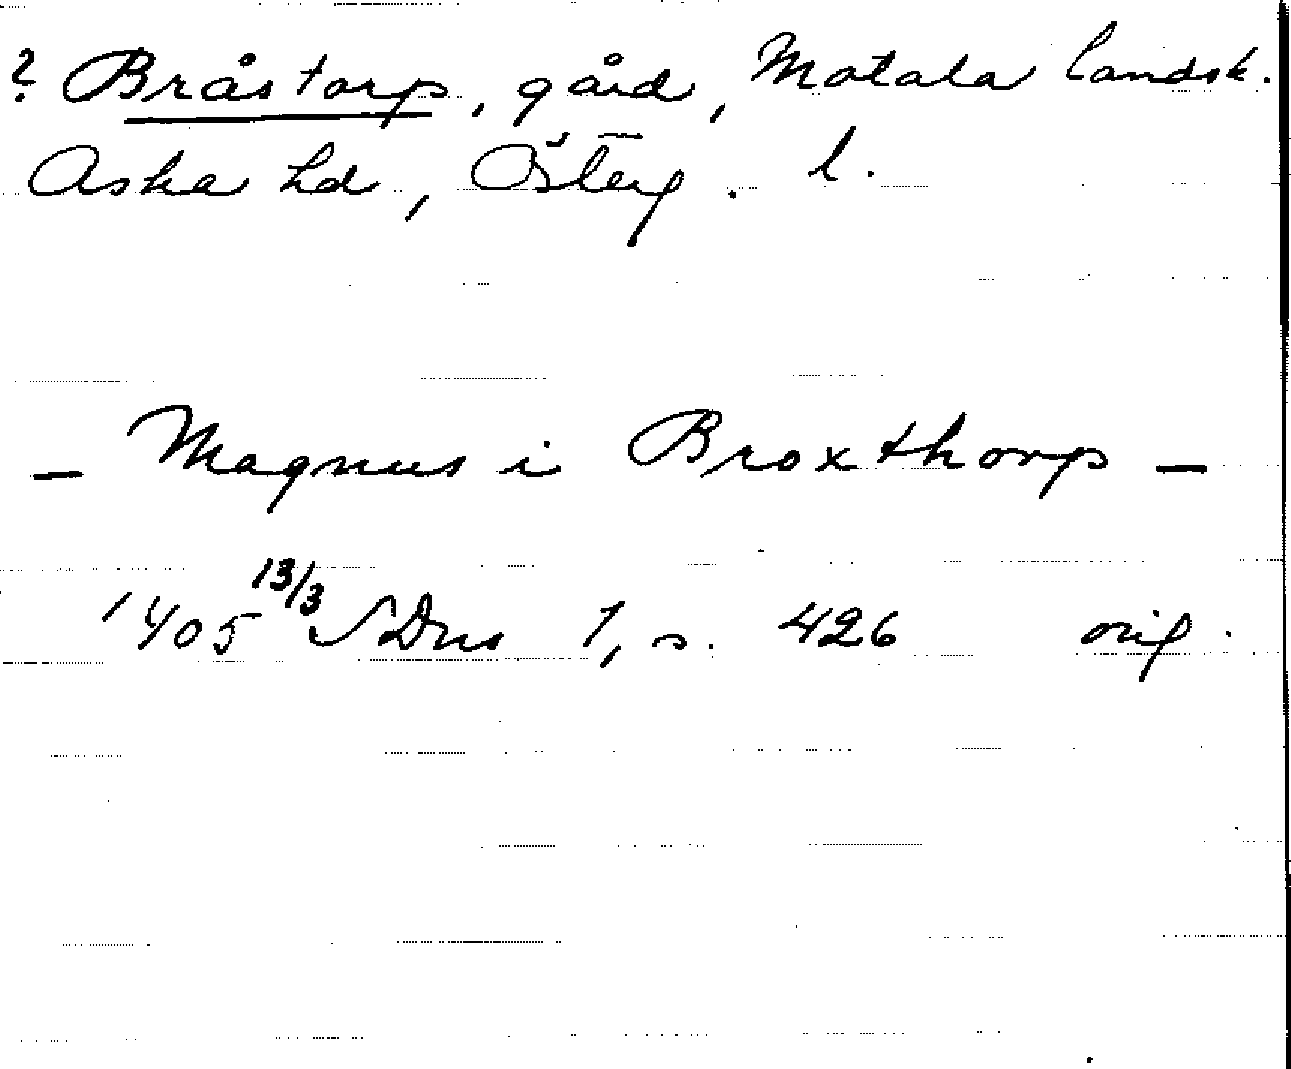 ? Bråstorp, gård, Motala landsk.
Aska hd, Österg. l.
– Magnus i Broxthorp –
1405 13/3 SDns 1, s. 426 orig.